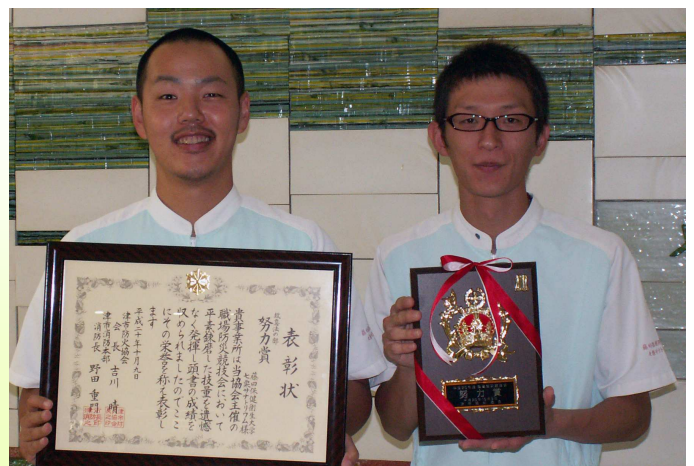 表彰状
努力賞
藤田保健衛生大学
七栗サナトリウム様
貴事業所は当協会主催の
職場防火競技会において
平素錬磨した技量を遺憾
なく発揮し頭書の成績を
収められましたのでここ
にその栄誉を称え表彰し
ます
平成二十年十月九日
津市防火協会
会長 吉川 晴
津市消防本部
消防長 野田重門
努力賞